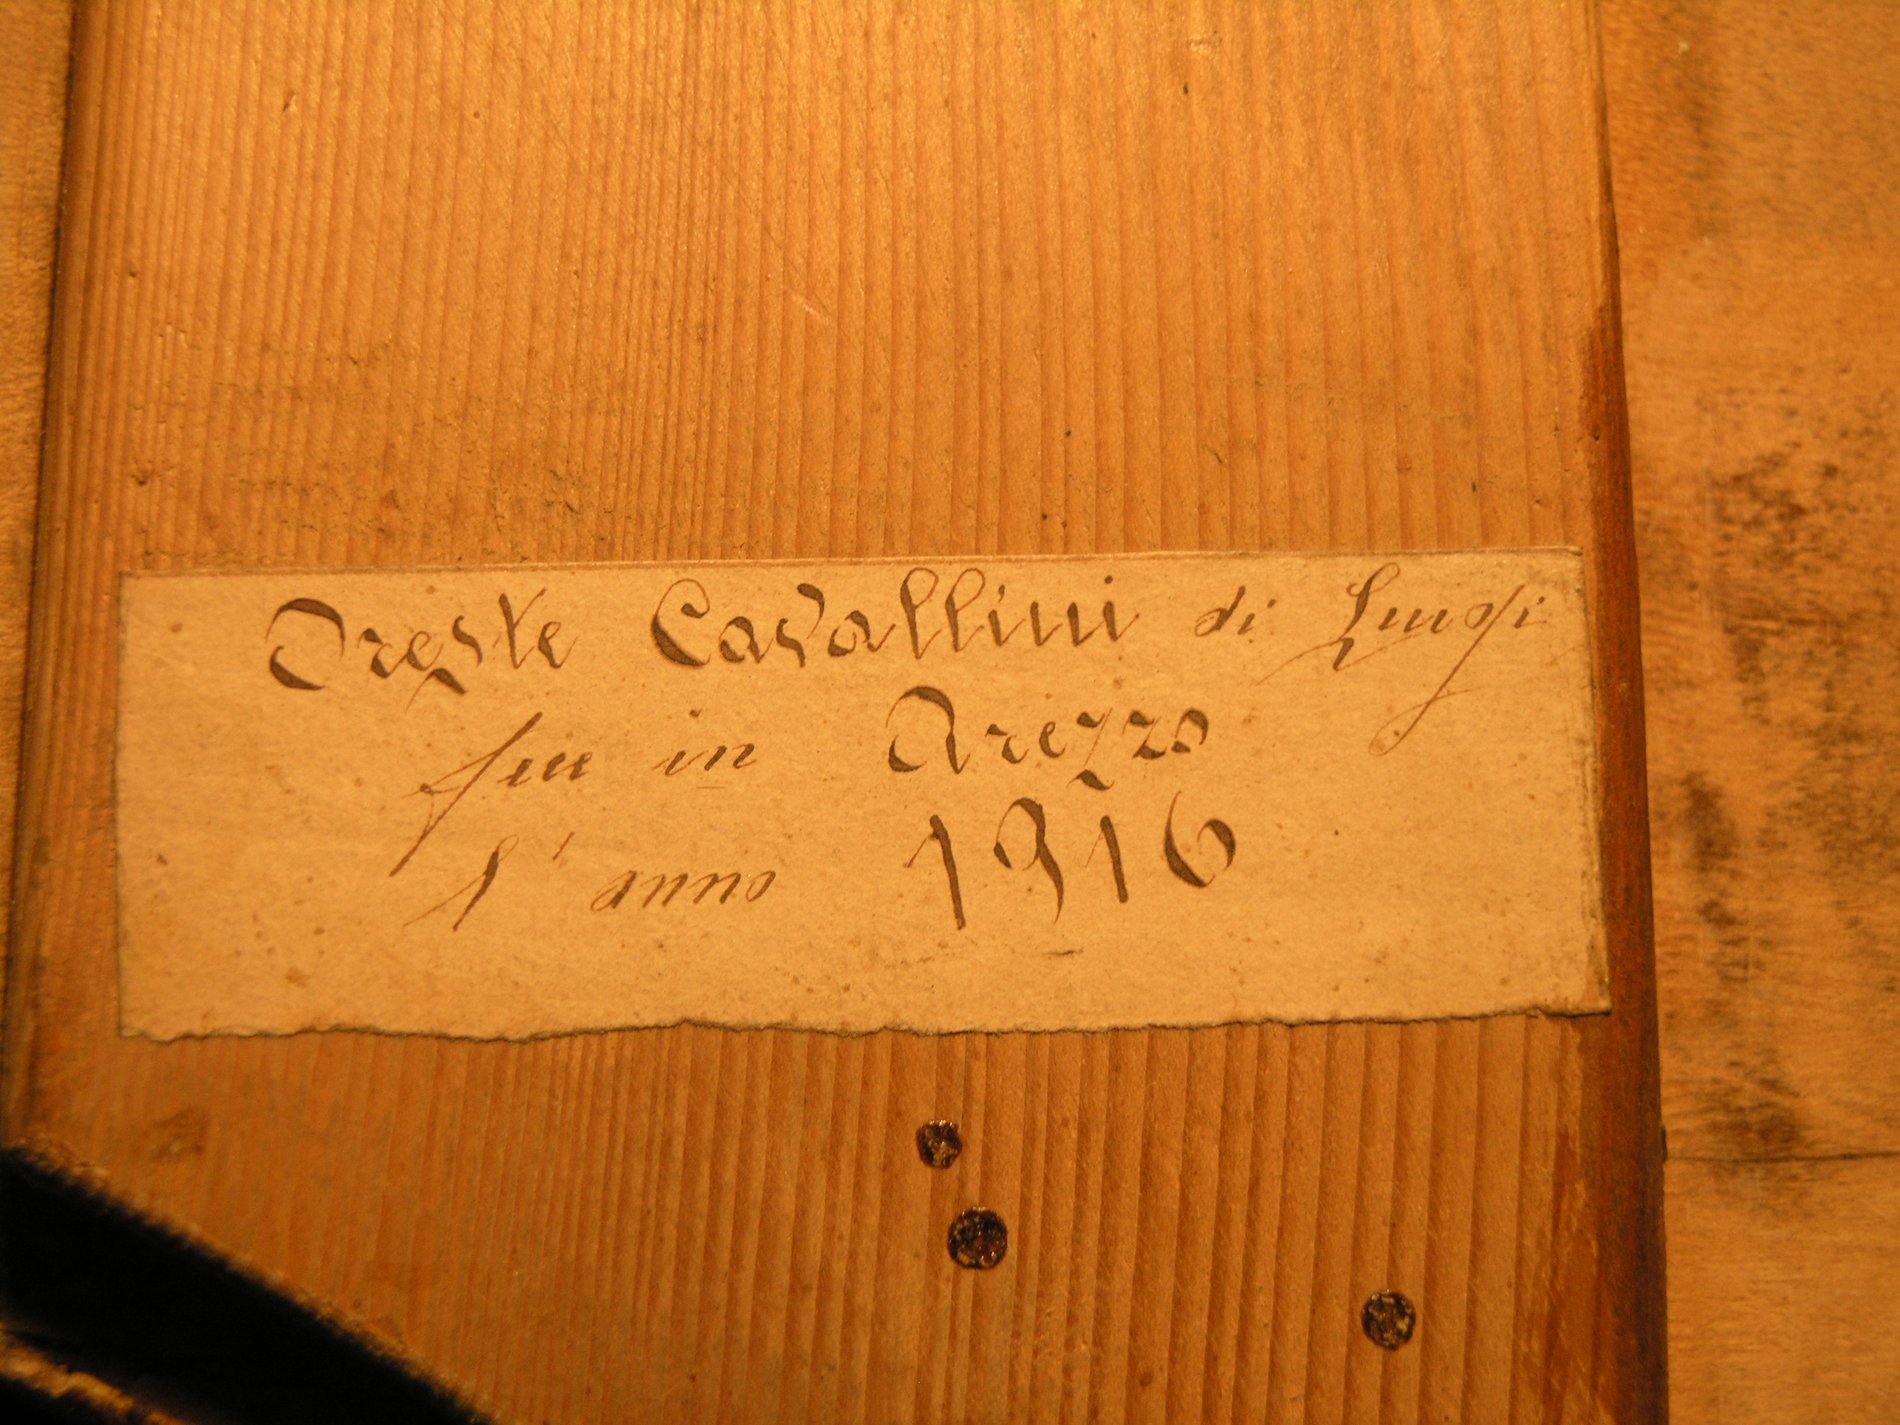 Oreste Cavallini di Luigi
fece in Arezzo
l'anno 1916